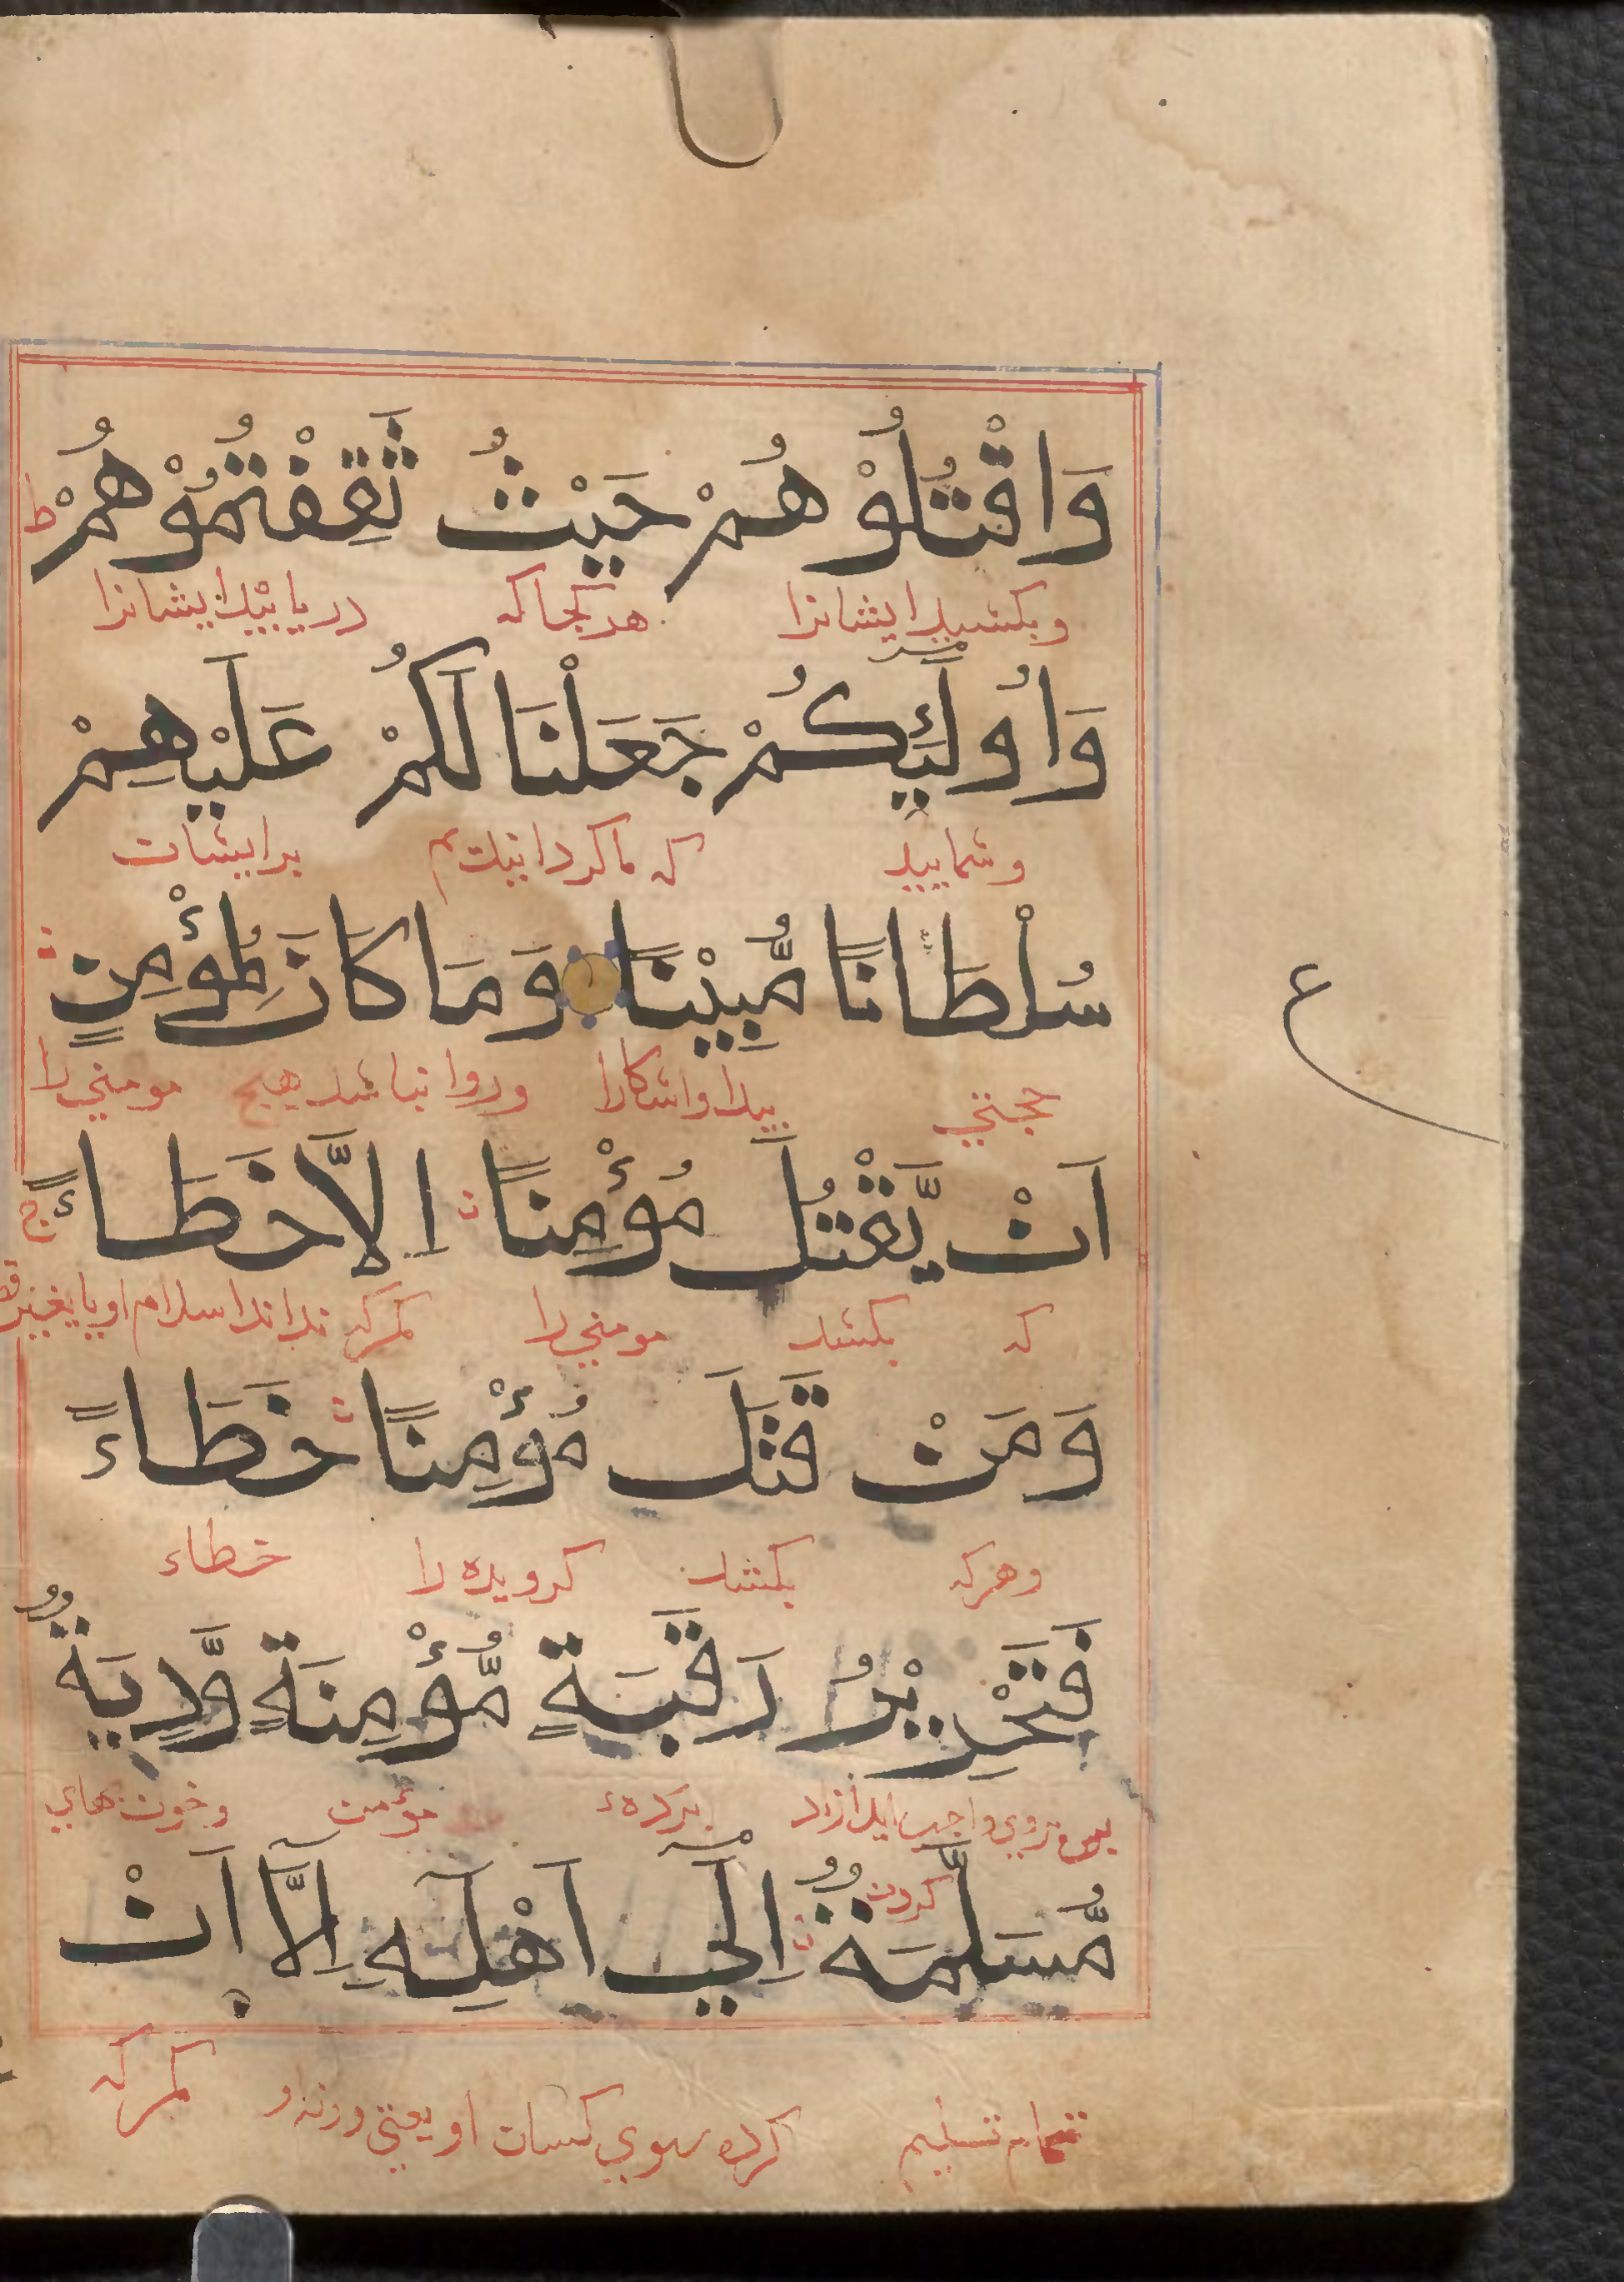 وَاقْتُلُوْهُمْ حَيْثُ ثَقِفْتُمُوْهُمْ ط
وبكشيد ايشانرا هر كجا كه دريابيد ايشانرا
وَاُولَٓئِكُمْ جَعَلْنَا لَكُمْ عَلَيْهِمْ
وشماييد كه ما كردانيديم برايشان
سُلْطَانًا مُّبِيْنًا وَمَا كَانَ لِمُؤْمِنٍ
حجتي پيدا واشكارا وروا نباشد هيچ مومني را
اَنْ يَّقْتُلَ مُؤْمِنًا اِلَّا خَطَاءً ج
كه بكشد مومني را مكر كه نداند اسلام او يا بغير
وَمَنْ قَتَلَ مُؤْمِنًا خَطَاءً
وهركه بكشد كرويده را خطاء
فَتَحْرِيْرُ رَقَبَةٍ مُّؤْمِنَةٍ وَّدِيَةٌ
پس بروي واجب ايد ازاد كردن بردهء مؤمن وخون بهاي
مُّسَلَّمَةٌ اِلَٓي اَهْلِهِ اِلَّٓا اَنْ
تمام تسليم كرده بسوي كسان او يعني ورثه و مكر كه
ع